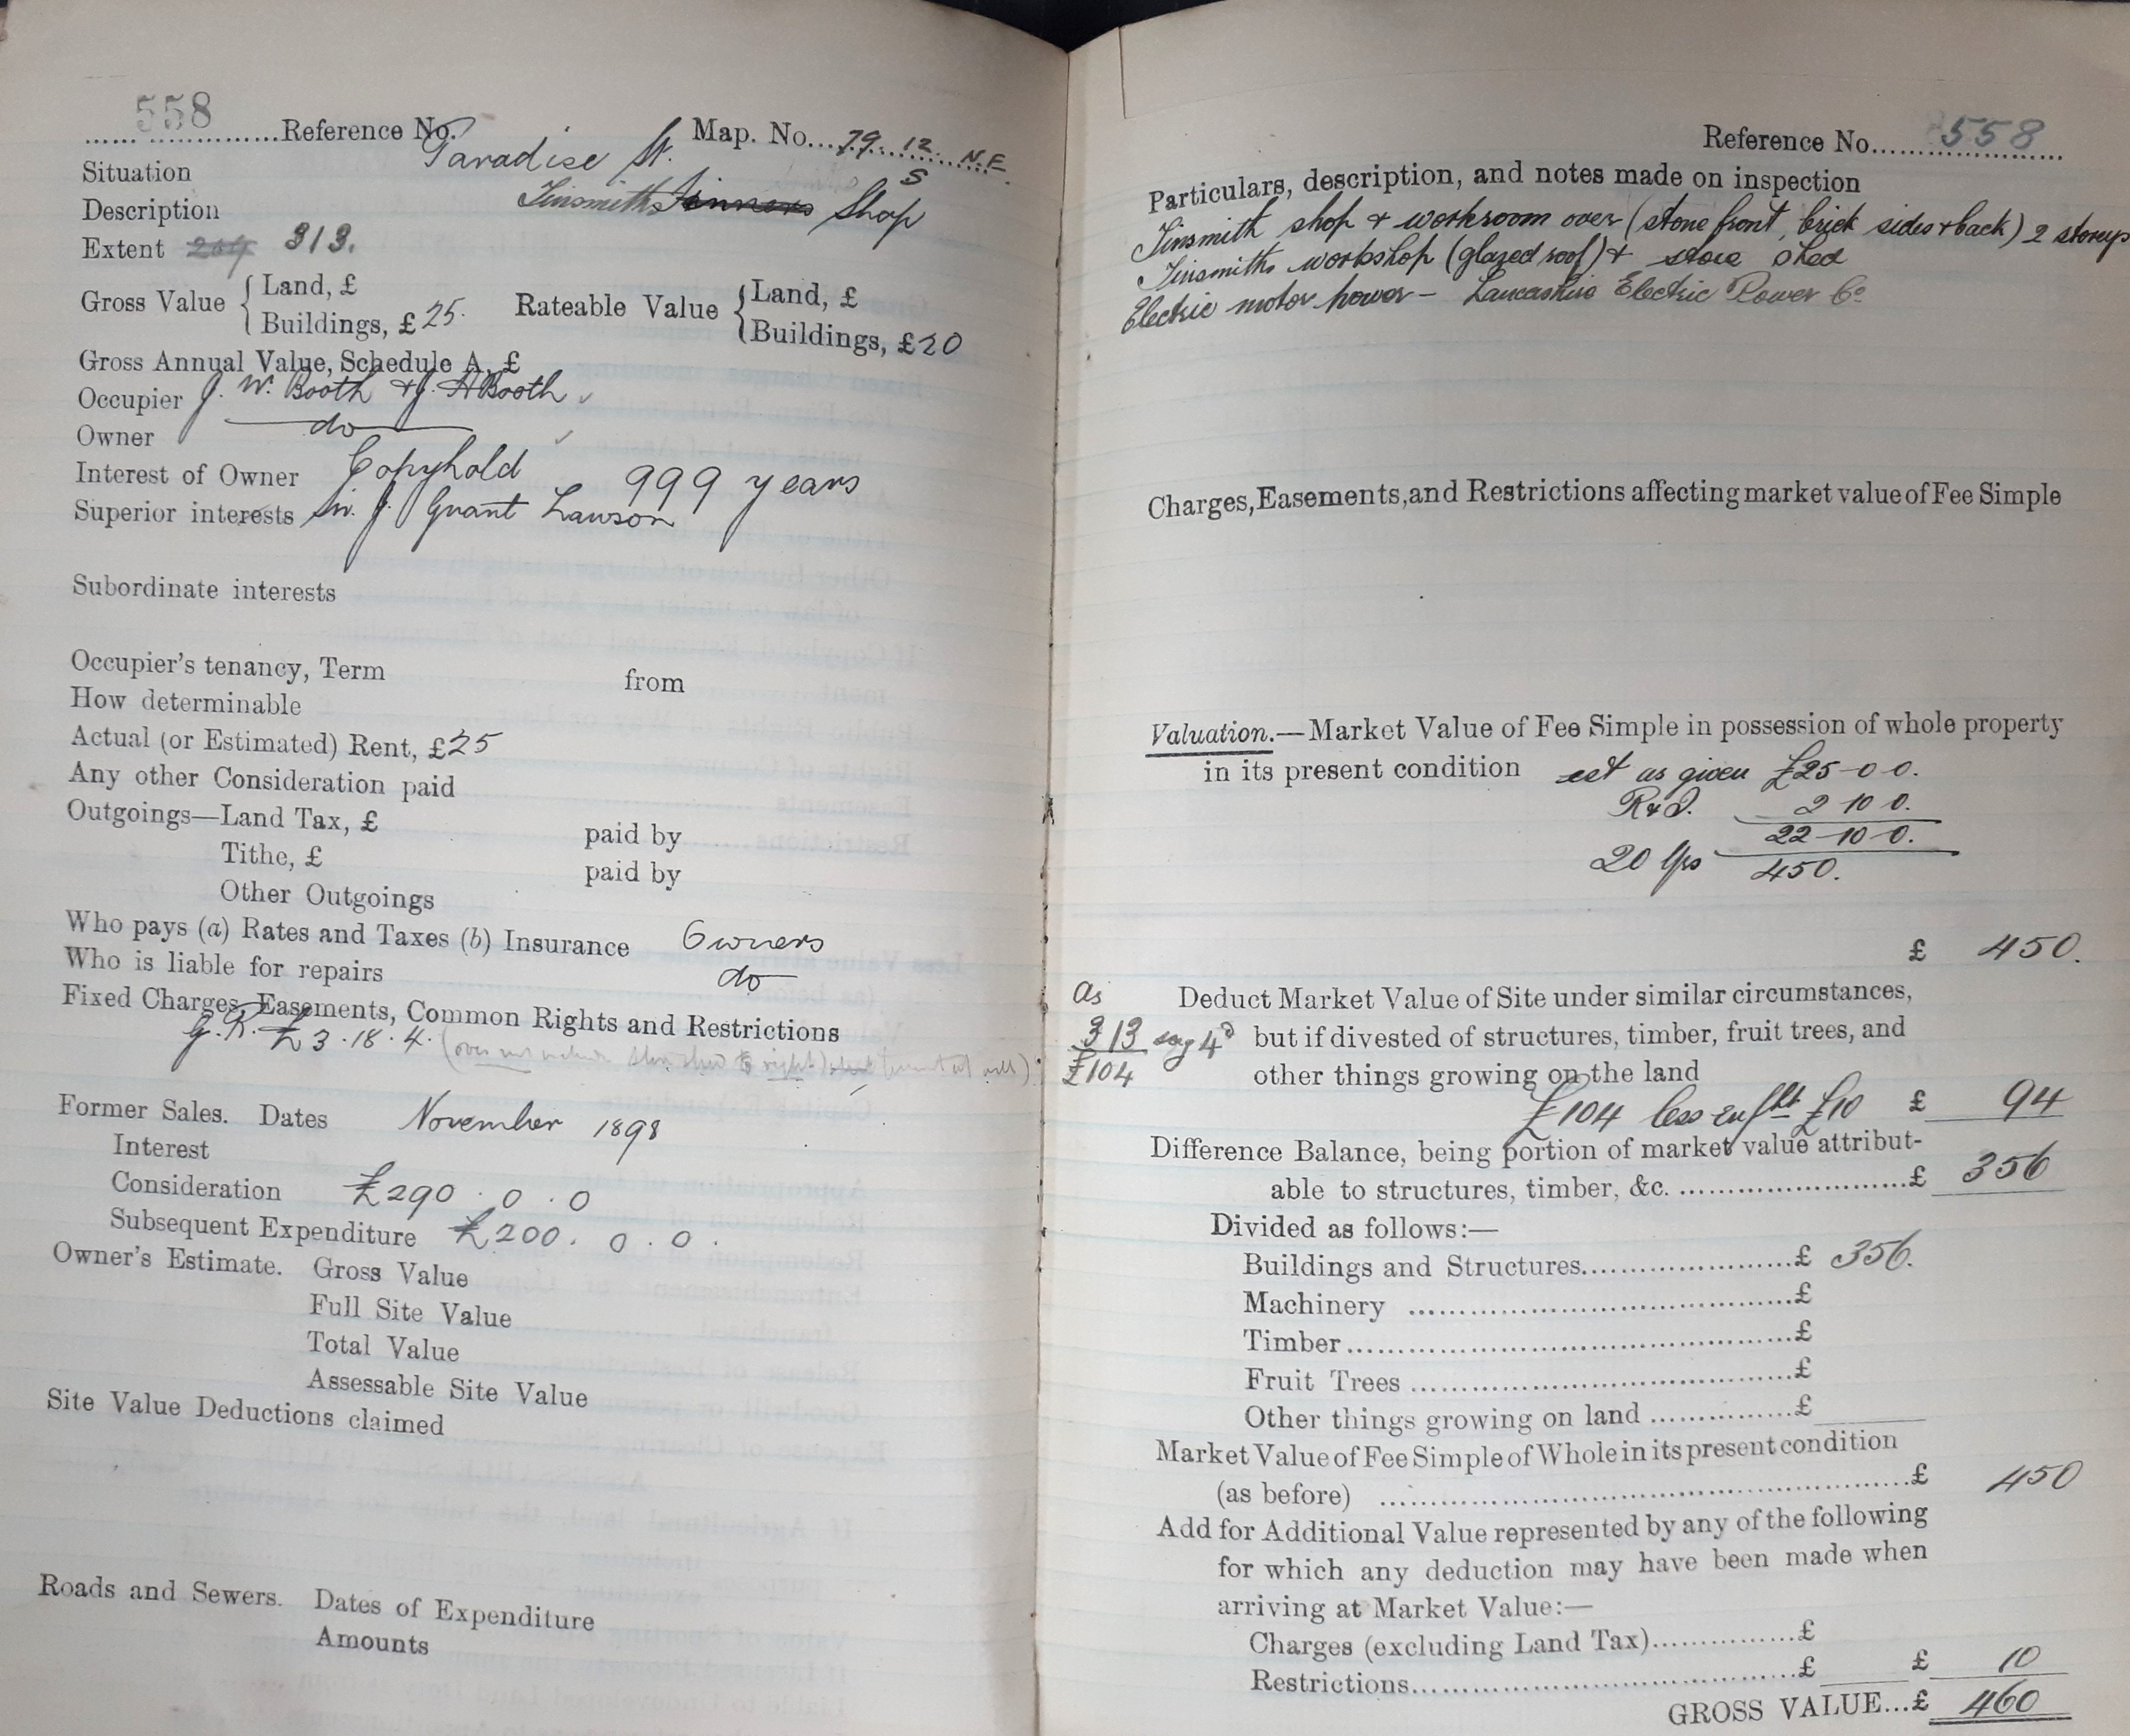 558 Reference No. Map. No. 79. 12. N.E
S
Situation Paradise St.
Description Tinsmiths Shop
Extent 313.
Gross Value { Land, £ Rateable Value { Land, £
Buildings, £25. Buildings, £20
Gross Annual Value, Schedule A, £
Occupier J. W. Booth & J. H Booth
Owner do
Interest of Owner Copyhold 999 years
Superior interests Sir. J. Grant Lawson
Subordinate interests
Occupier's tenancy, Term from
How determinable
Actual (or Estimated) Rent, £25
Any other Consideration paid
Outgoings—Land Tax, £ paid by
Tithe, £ paid by
Other Outgoings
Who pays (a) Rates and Taxes (b) Insurance Owners
Who is liable for repairs do
Fixed Charges, Easements, Common Rights and Restrictions
G.R. £3.18.4.
Former Sales. Dates November 1898
Interest
Consideration £290.0.0
Subsequent Expenditure £200.0.0.
Owner's Estimate. Gross Value
Full Site Value
Total Value
Assessable Site Value
Site Value Deductions claimed
Roads and Sewers. Dates of Expenditure
Amounts
Reference No. 558
Particulars, description, and notes made on inspection
Tinsmith shop & workroom over (stone front, brick sides & back) 2 storeys
Tinsmiths workshop (glazed roof) & store shed
Electric motor power - Lancashire Electric Power Co
Charges, Easements, and Restrictions affecting market value of Fee Simple
Valuation.—Market Value of Fee Simple in possession of whole property
in its present condition est as given £25-0 0.
R & I. 2 10 0.
22-10-0.
20 yps 450.
£ 450.
as Deduct Market Value of Site under similar circumstances,
313 say 4d but if divested of structures, timber, fruit trees, and
£104 other things growing on the land
£104 less enfht £10 £ 94
Difference Balance, being portion of market value attribut-
able to structures, timber, &c. £ 356
Divided as follows:—
Buildings and Structures £ 356.
Machinery £
Timber £
Fruit Trees £
Other things growing on land £
Market Value of Fee Simple of Whole in its present condition
(as before) £ 450
Add for Additional Value represented by any of the following
for which any deduction may have been made when
arriving at Market Value:—
Charges (excluding Land Tax) £
Restrictions £ £ 10
GROSS VALUE...£ 460